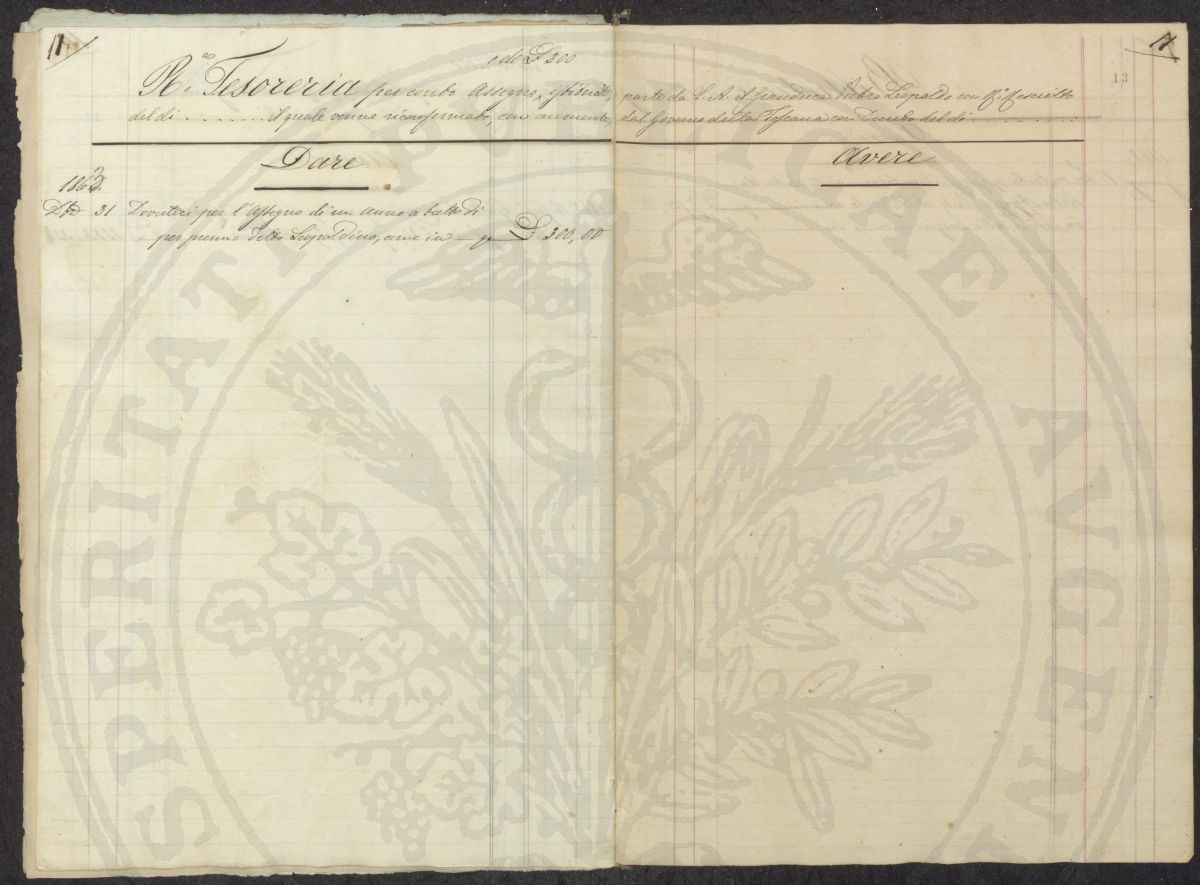 17
17
13
di £ 300
R. Tesoreria per conto Assegno, istituito, parte da S. A. il Granduca Pietro Leopoldo con R.º Rescritto
del dì . . . . . . . . il quale venne riconfermato, con aumento, dal Governo della Toscana con Decreto del dì . . . . . . . .
Dare
Avere
1862.
Dbr 31 Dovutici per l'Assegno di un anno a tutto dì
per premio detto Leopoldino, come in £ 300,00
SPERITATI PVBLICAE AVGEN